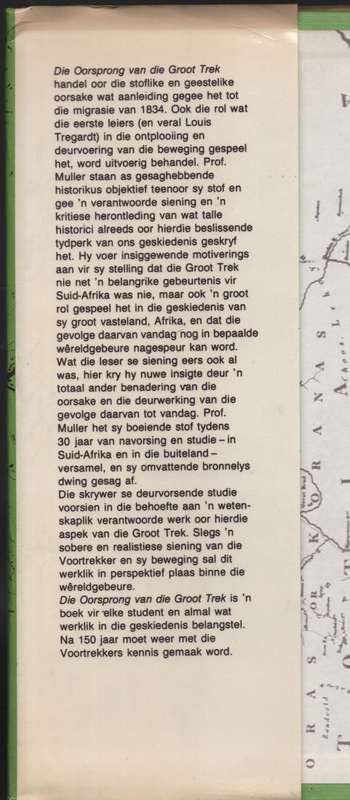 Die Oorsprong van die Groot Trek
handel oor die stoflike en geestelike
oorsake wat aanleiding gegee het tot
die migrasie van 1834. Ook die rol wat
die eerste leiers (en veral Louis
Tregardt) in die ontplooiing en
deurvoering van die beweging gespeel
het, word uitvoerig behandel. Prof.
Muller staan as gesaghebbende
historikus objektief teenoor sy stof en
gee 'n verantwoorde siening en 'n
kritiese herontleding van wat talle
historici alreeds oor hierdie beslissende
tydperk van ons geskiedenis geskryf
het. Hy voer insiggewende motiverings
aan vir sy stelling dat die Groot Trek
nie net 'n belangrike gebeurtenis vir
Suid-Afrika was nie, maar ook 'n groot
rol gespeel het in die geskiedenis van
sy groot vasteland, Afrika, en dat die
gevolge daarvan vandag nog in bepaalde
wêreldgebeure nagespeur kan word.
Wat die leser se siening eers ook al
was, hier kry hy nuwe insigte deur 'n
totaal ander benadering van die
oorsake en die deurwerking van die
gevolge daarvan tot vandag. Prof.
Muller het sy boeiende stof tydens
30 jaar van navorsing en studie – in
Suid-Afrika en in die buiteland –
versamel, en sy omvattende bronnelys
dwing gesag af.
Die skrywer se deurvorsende studie
voorsien in die behoefte aan 'n weten-
skaplik verantwoorde werk oor hierdie
aspek van die Groot Trek. Slegs 'n
sobere en realistiese siening van die
Voortrekker en sy beweging sal dit
werklik in perspektief plaas binne die
wêreldgebeure.
Die Oorsprong van die Groot Trek is 'n
boek vir elke student en almal wat
werklik in die geskiedenis belangstel.
Na 150 jaar moet weer met die
Voortrekkers kennis gemaak word.
KORANAS